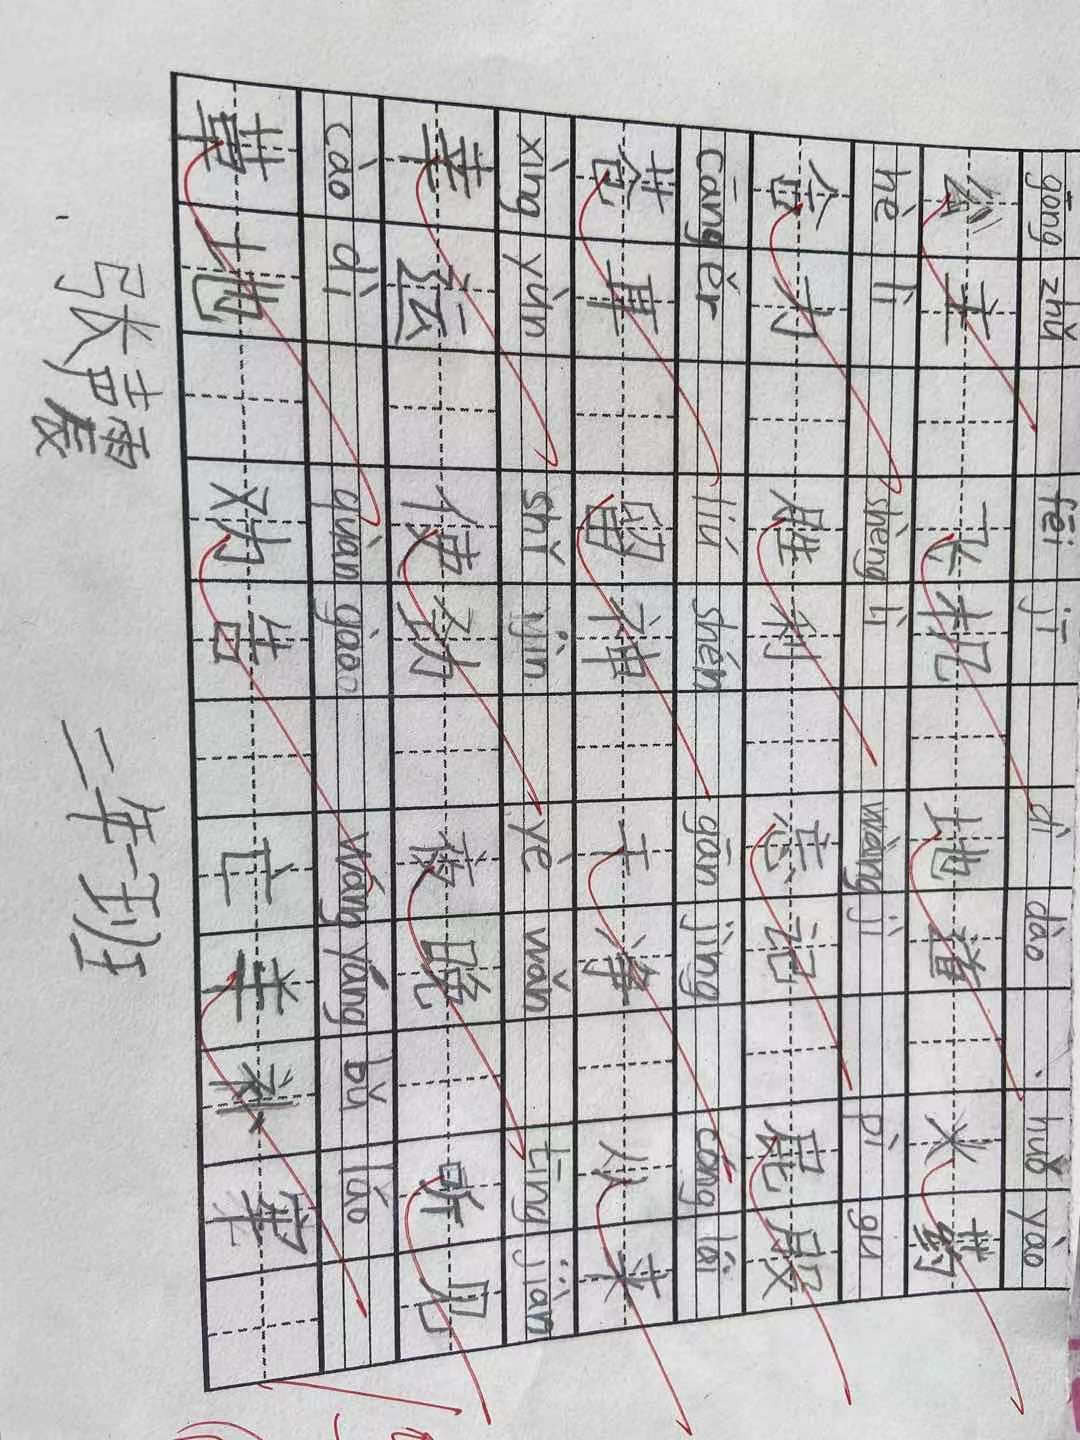 gōng zhǔ fēi jī dì dào huǒ yào
公主 飞机 地道 火药
hé lì shèng lì wàng jì pì gu
合力 胜利 忘记 屁股
cāng ěr liú shén gān jìng cóng lái
苍耳 留神 干净 从来
xìng yùn shǐ jìn yè wǎn tīng jiàn
幸运 使劲 夜晚 听见
cǎo dì quàn gào wáng yáng bǔ láo
草地 劝告 亡羊补牢
二年一班